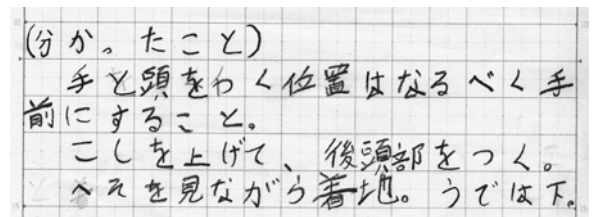 (分かったこと)
手と頭をつく位置はなるべく手
前にすること。
こしを上げて、後頭部をつく。
へそを見ながら着地。うでは下。